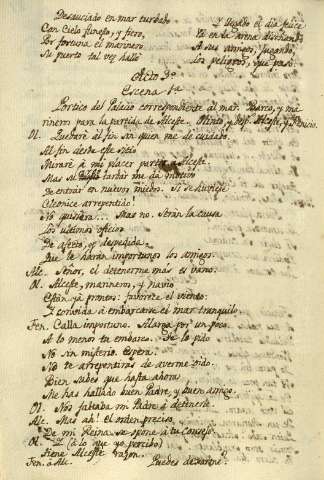 Desauciado en mar turbado
Con Cielo funesto, y fiero,
Por fortuna el marinero
Su puerto tal vez halló
Y llegado el dia felice
El en la arena
A sus amigos, jugando,
los peligros, que pasó.
Acto 3º
Escena 1ª
Portico del Palacio correspondiente al mar. Barco, y marineros para la partida de Alceste. Olinto, y desp. Alceste, y Fenicio
Ol. Quedaré al fin sin quien me dé cuidado,
Al fin desde este sitio
Miraré á mi placer partir á Alceste.
Mas su tardar me da motivo
De entrar en nuevos miedos. Si se
Cleonice arrepentido!
No quisiera... Mas no. Serán la causa
los ultimos oficios
De afecto, y despedida
Que le harán importunos los amigos.
Alc. Señor, el detenerme más es vano.
Ol. Alceste, marineros, y navio
Están ya prontos: favorece el viento:
Y convida á embarcarse el mar tranquilo
Fen. Calla importuno. Alarga por un poco
A lo menos tu embarco. Te lo pido
No sin misterio. Espera.
No te arrepentirás de averme oido.
Bien sabes que hasta ahora
Me has hallado buen Padre, y buen amigo.
Ol. Nos faltaba mi Padre á detenerle.
Alc. Mas ah! El orden preciso
De mi Reina se opone á tu consejo.
Ol. Y (á lo que yo percibo)
tiene Alceste razon.
Fen. a Alc. Puedes dexarme?